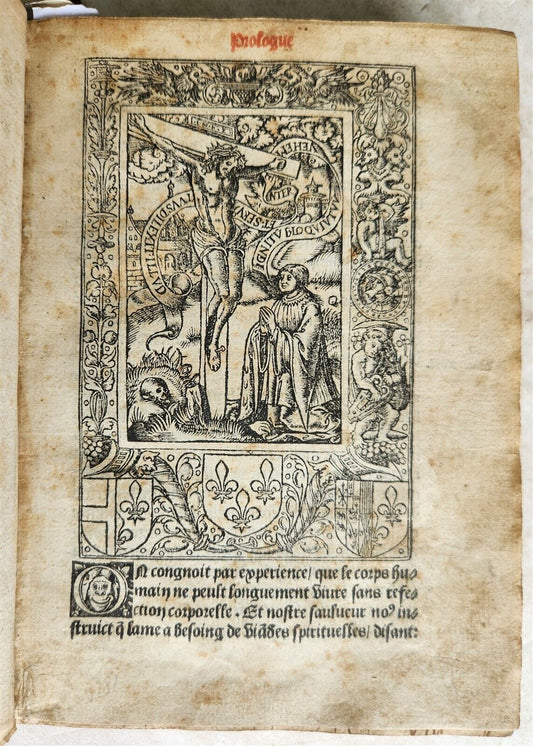 Prologue
INTER
On congnoit par experience/ que le corps hu⸗
main ne peult longuement viure sans refe⸗
ction corporelle. Et nostre saulueur no⁹ in⸗
struict q̃ lame a besoing de viãdes spirituelles/ disant: